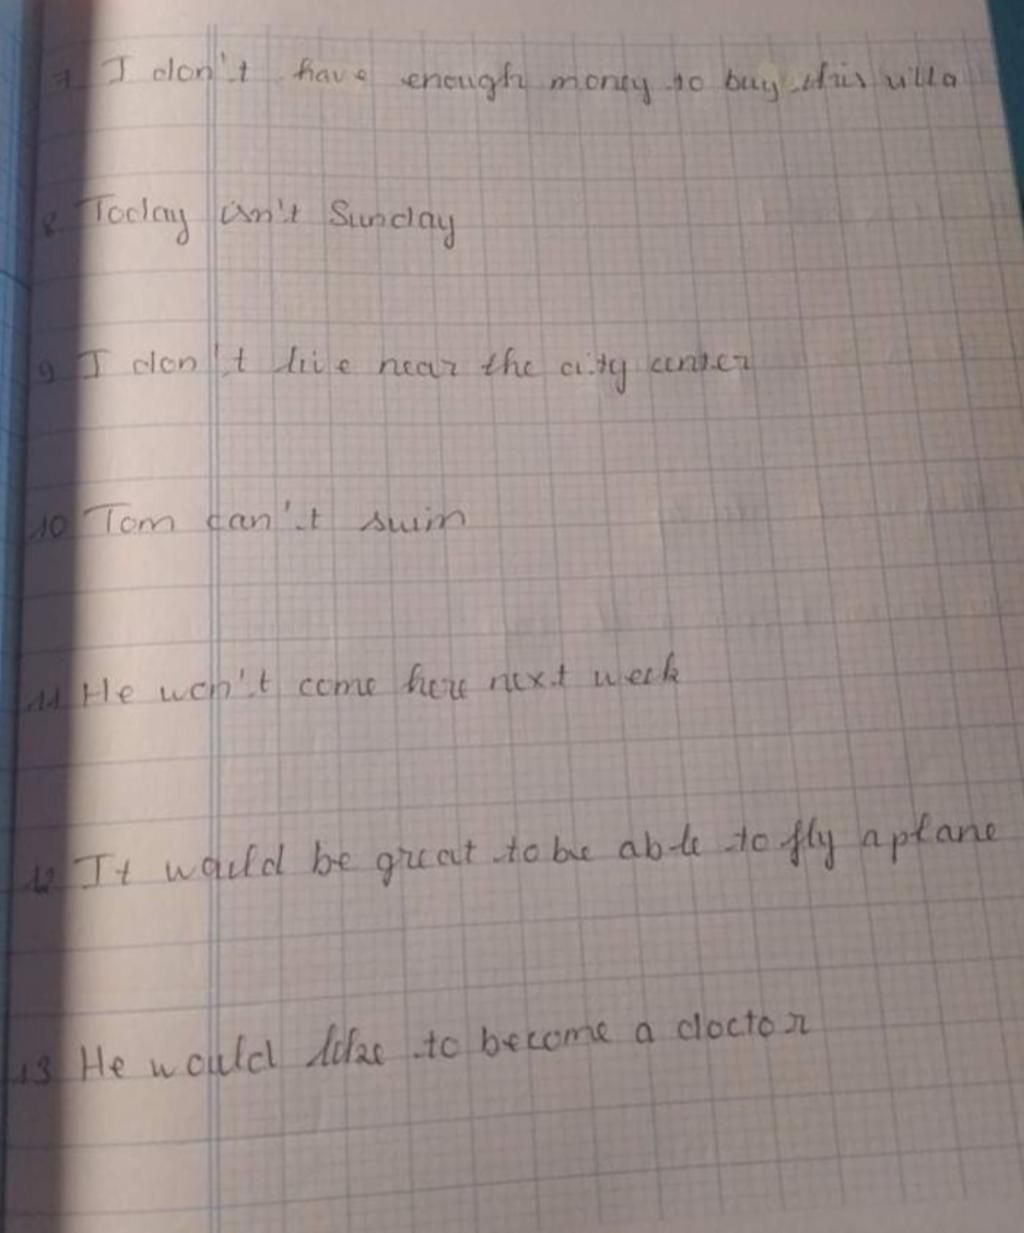 7 I don't have enough money to buy this villa
8 Today isn't Sunday
9 I don't live near the city center
10 Tom can't swim
11 He won't come here next week
12 It would be great to be able to fly a plane
13 He would like to become a doctor